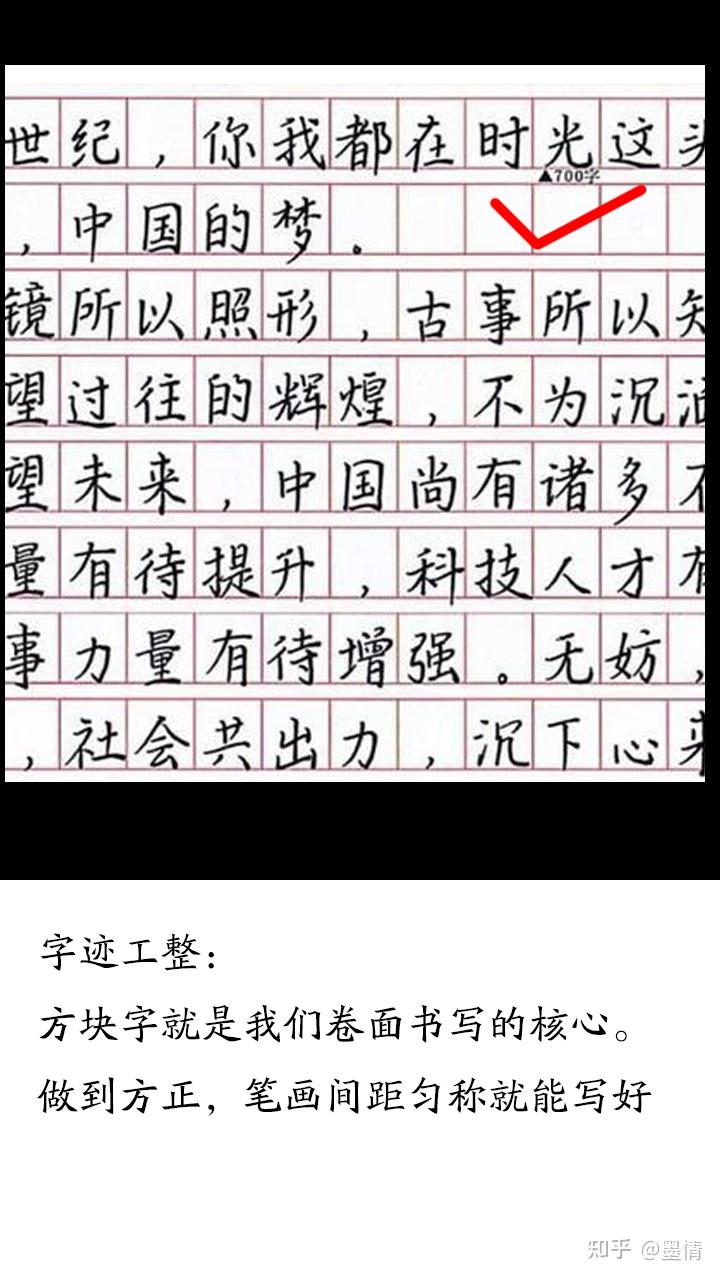 世纪，你我都在时光这头
▲700字
，中国的梦。
镜所以照形，古事所以知
望过往的辉煌，不为沉湎
望未来，中国尚有诸多不
量有待提升，科技人才有
事力量有待增强。无妨，
，社会共出力，沉下心来
字迹工整：
方块字就是我们卷面书写的核心。
做到方正，笔画间距匀称就能写好
知乎 @墨情